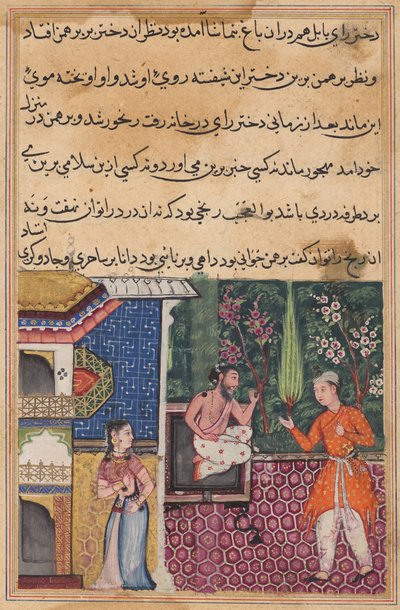 دختر رای بابل هم در ان باغ بتماشا آمده بود نظر ان دختر بر برهمن افتاد
و نظر برهمن برین دختر این شیفته روی او شد و او اوبخته موی
این ماند بعد از زمانی دختر رای در خانه رفت رنجور شد و برهمن در منزل
خود امد مهجور ماند نه کسی خبر برین می اورد و نه کسی ازین سلامی برین می
برد طرفه دردی باشد بوالعجب رنجی بود که نه از درد توان نهفت و نه
از رنج توان گفت برهمن جوانی بود داهی و برنائی بود دانا بر ساحری و جادوگری
استاد